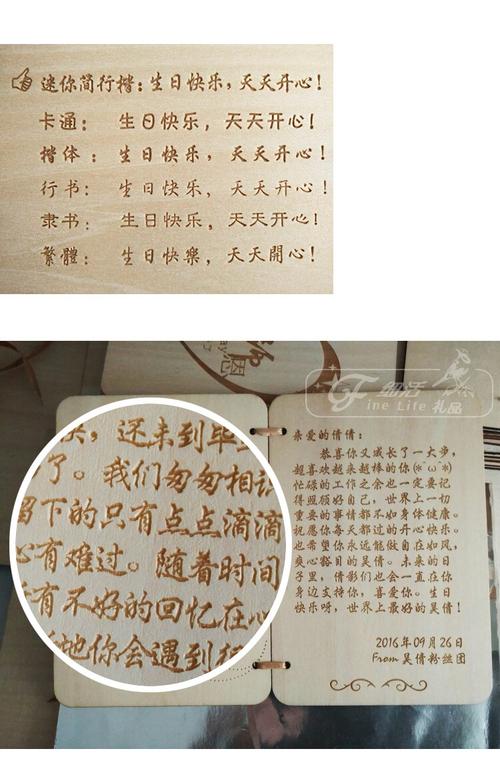 迷你简行楷：生日快乐，天天开心！
卡通： 生日快乐，天天开心！
楷体： 生日快乐，天天开心！
行书： 生日快乐，天天开心！
隶书： 生日快乐，天天开心！
繁體： 生日快樂，天天開心！
细活
Fine Life 礼品
，还来到毕
了。我们匆匆相识
留下的只有点点滴滴
心有难过。随着时间
有不好的回忆在心
他你会遇到
亲爱的倩倩：
恭喜你又成长了一大步，
超喜欢越来越棒的你(*´ω`*)
忙碌的工作之余也一定要记
得照顾好自己，世界上一切
重要的事情都不如身体健康。
祝愿你每天都过的开心快乐。
也希望你永远能做自在如风，
爽心豁目的吴倩。未来的日
子里，倩影们也会一直在你
身边支持你，喜爱你。生日
快乐呀，世界上最好的吴倩！
2016年09月26日
From吴倩粉丝团